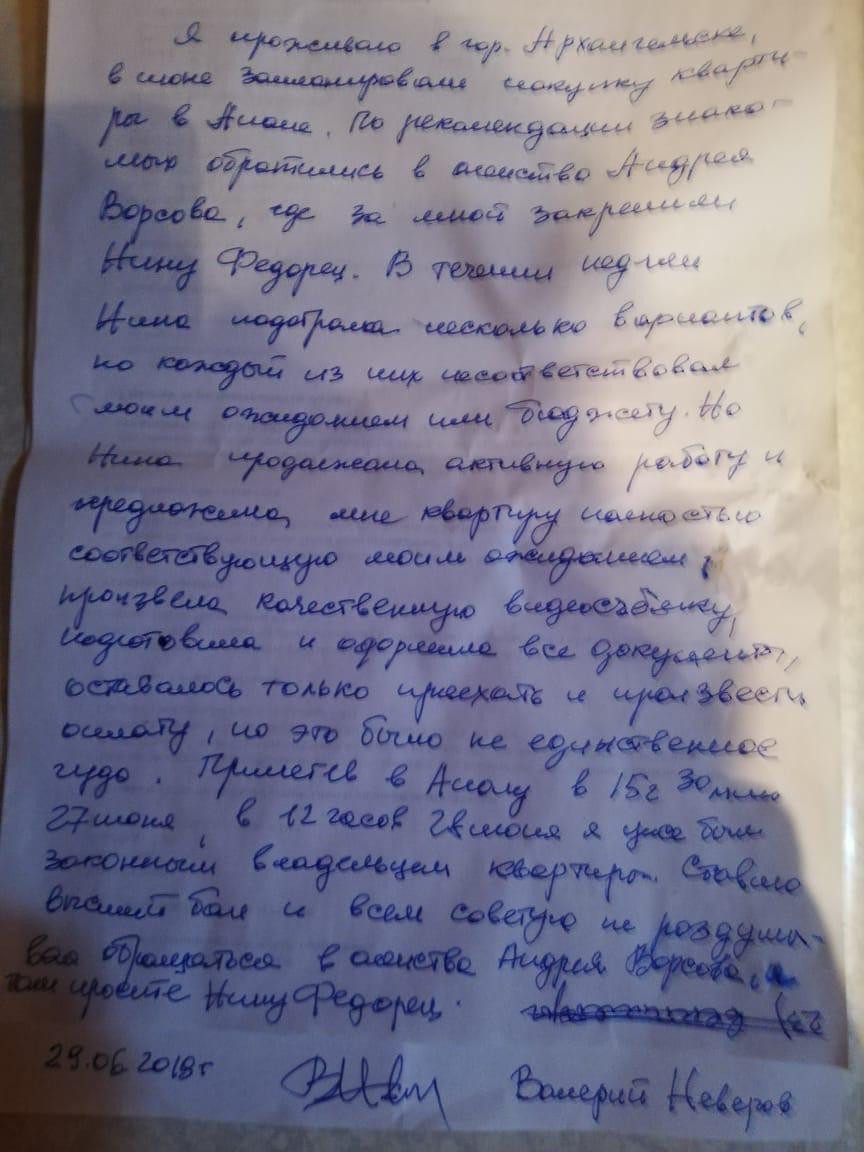 Я проживаю в гор. Архангельске,
в июне запланировали покупку кварти-
ры в Анапе. По рекомендации знако-
мых обратились в агенство Андрея
Ворсова, где за мной закрепили
Нину Федорец. В течении недели
Нина подобрала несколько вариантов,
но каждый из них несоответствовал
моим ожиданием или бюджету. Но
Нина продолжала активную работу и
предложила мне квартиру полностью
соответствующую моим ожиданием,
произвела качественную видеосъёмку,
подготовила и оформила все документы,
оставалось только приехать и произвести
оплату, но это было не единственное
чудо. Прилетев в Анапу в 15г 30мин
27июня, в 12 часов 28июня я уже был
законным владельцем квартиры. Ставлю
высший бал и всем советую не роздумы-
вая обращаться в агенства Андрея Ворсова,
там просите Нину Федорец.
29.06.2019г Валерий Неверов